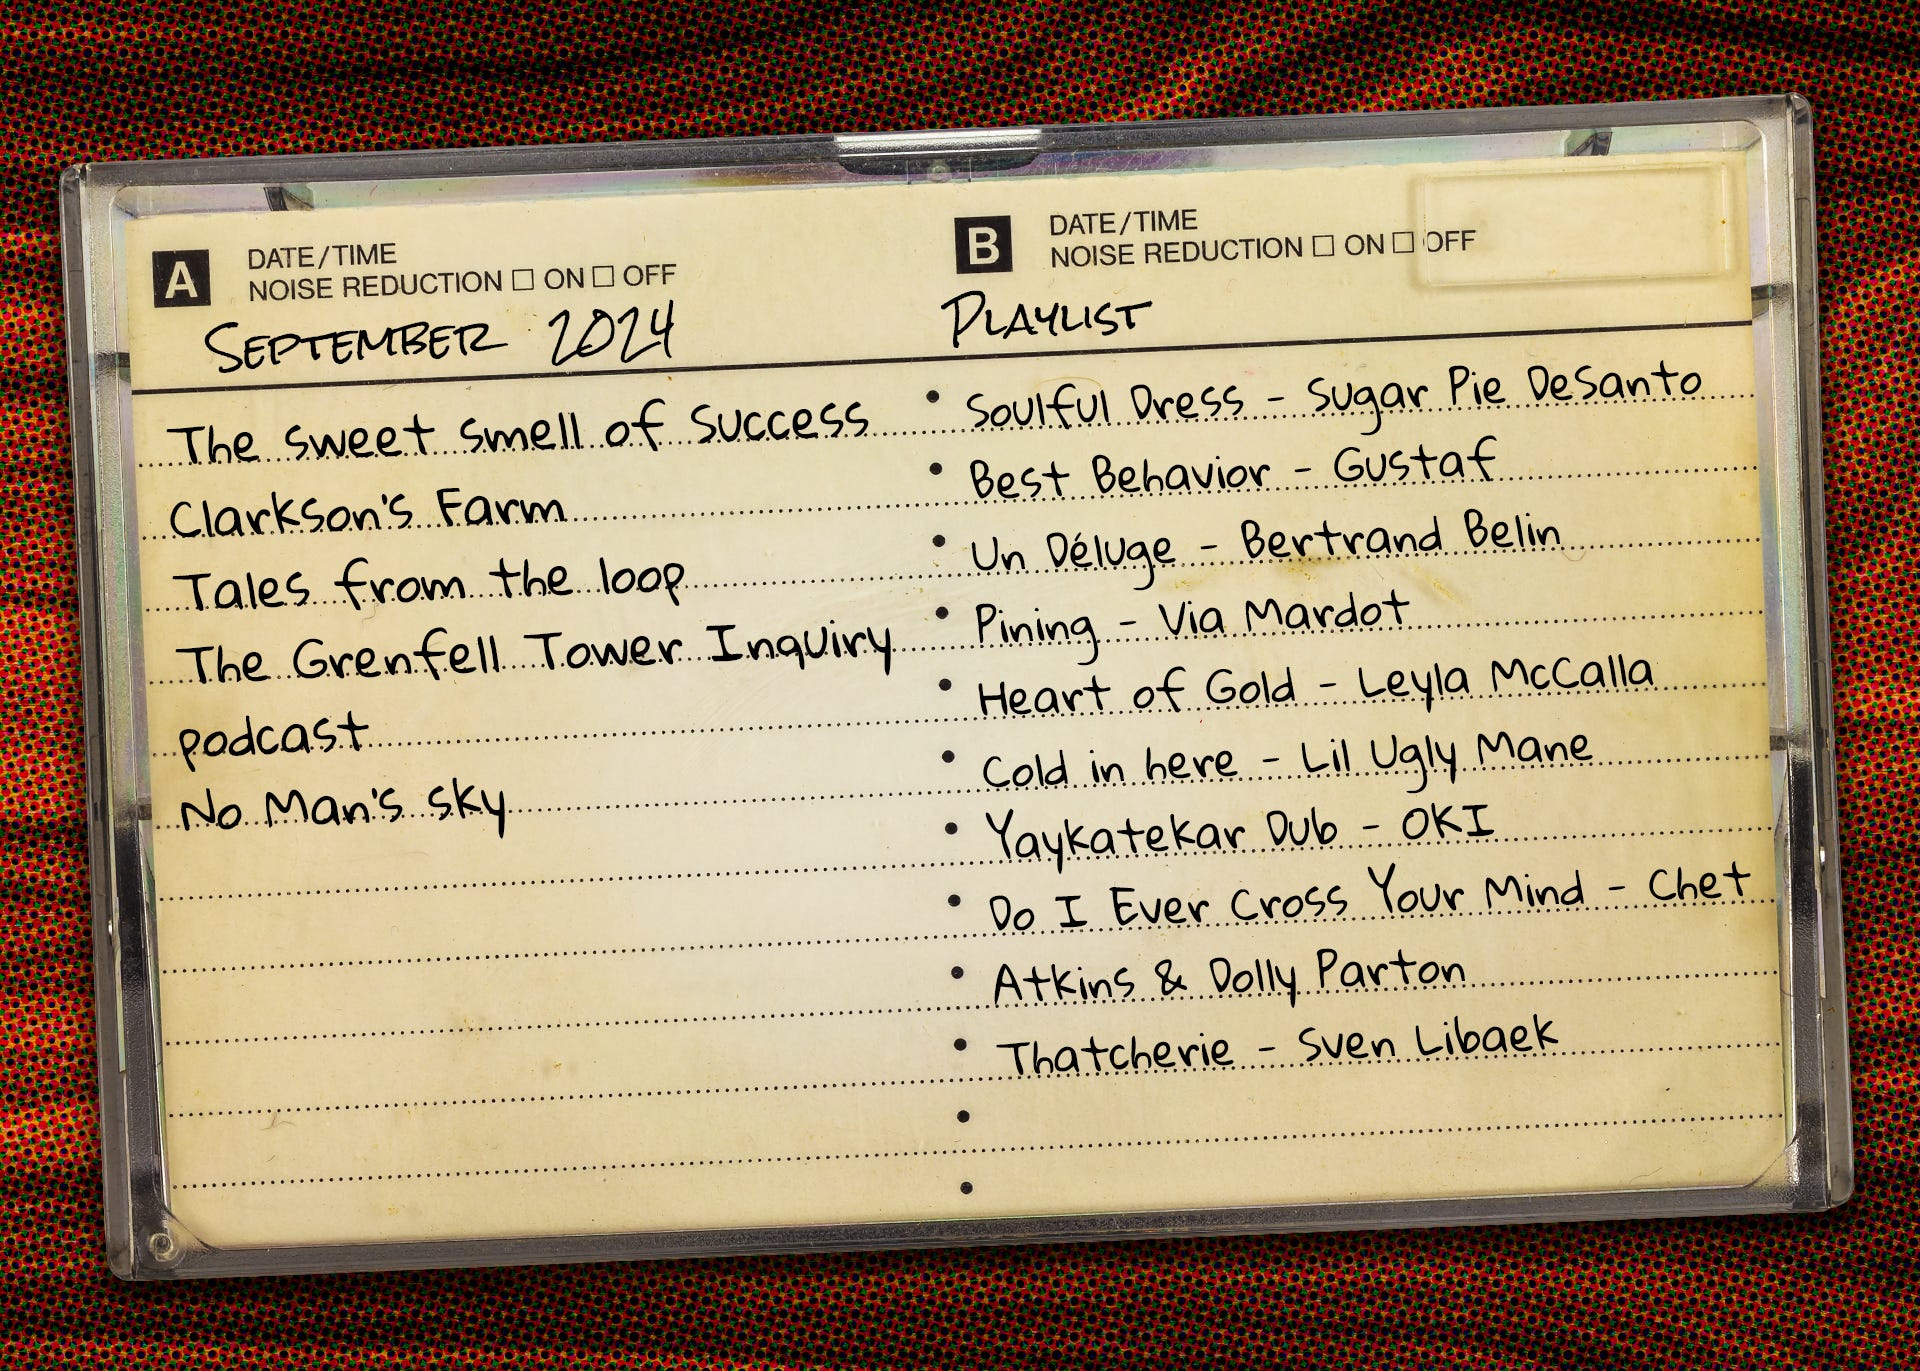 A
DATE/TIME
NOISE REDUCTION ☐ ON ☐ OFF
SEPTEMBER 2024
The sweet smell of success
Clarkson's Farm
Tales from the loop
The Grenfell Tower Inquiry
podcast
No Man's sky
B
DATE/TIME
NOISE REDUCTION ☐ ON ☐ OFF
PLAYLIST
• Soulful Dress - Sugar Pie DeSanto
• Best Behavior - Gustaf
• Un Déluge - Bertrand Belin
• Pining - Via Mardot
• Heart of Gold - Leyla McCalla
• Cold in here - Lil Ugly Mane
• Yaykatekar Dub - OKI
• Do I Ever Cross Your Mind - Chet
• Atkins & Dolly Parton
• Thatcherie - Sven Libaek